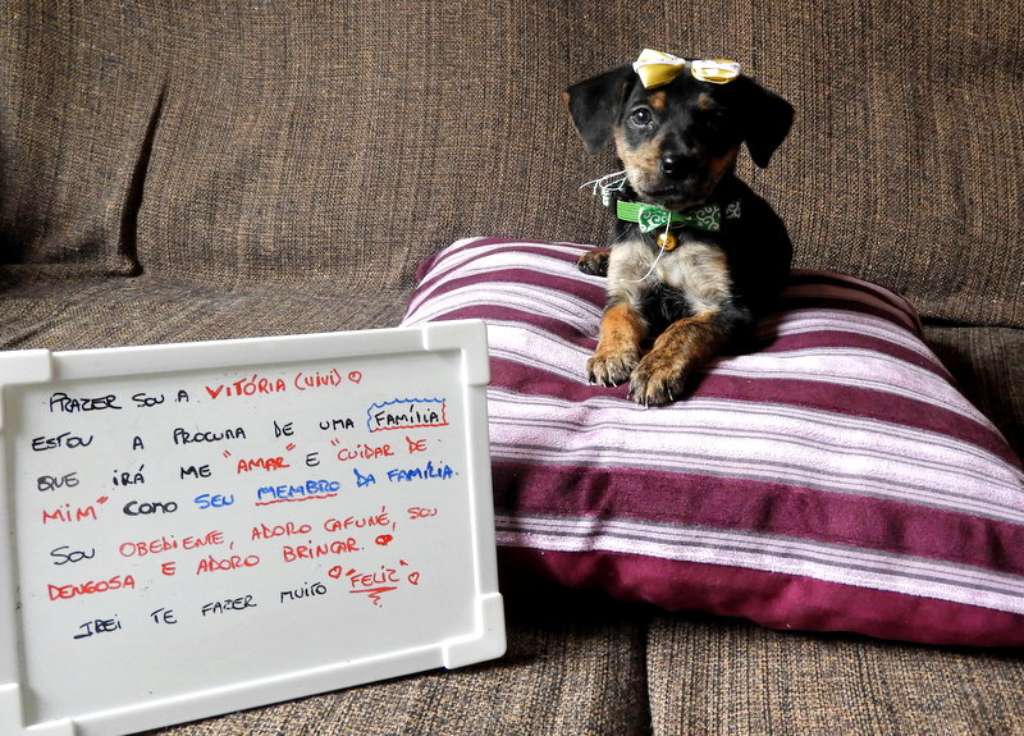 PRAZER SOU A VITÓRIA (ViVi) ♡
ESTOU A PROCURA DE UMA FAMÍLIA
QUE IRÁ ME "AMAR" E "CUIDAR DE
MIM" COMO SEU MEMBRO DA FAMÍLIA.
SOU OBEDIENTE, ADORO CAFUNÉ, SOU
DENGOSA E ADORO BRINCAR. ♥
IREI TE FAZER MUITO ♡ "FELIZ" ♡